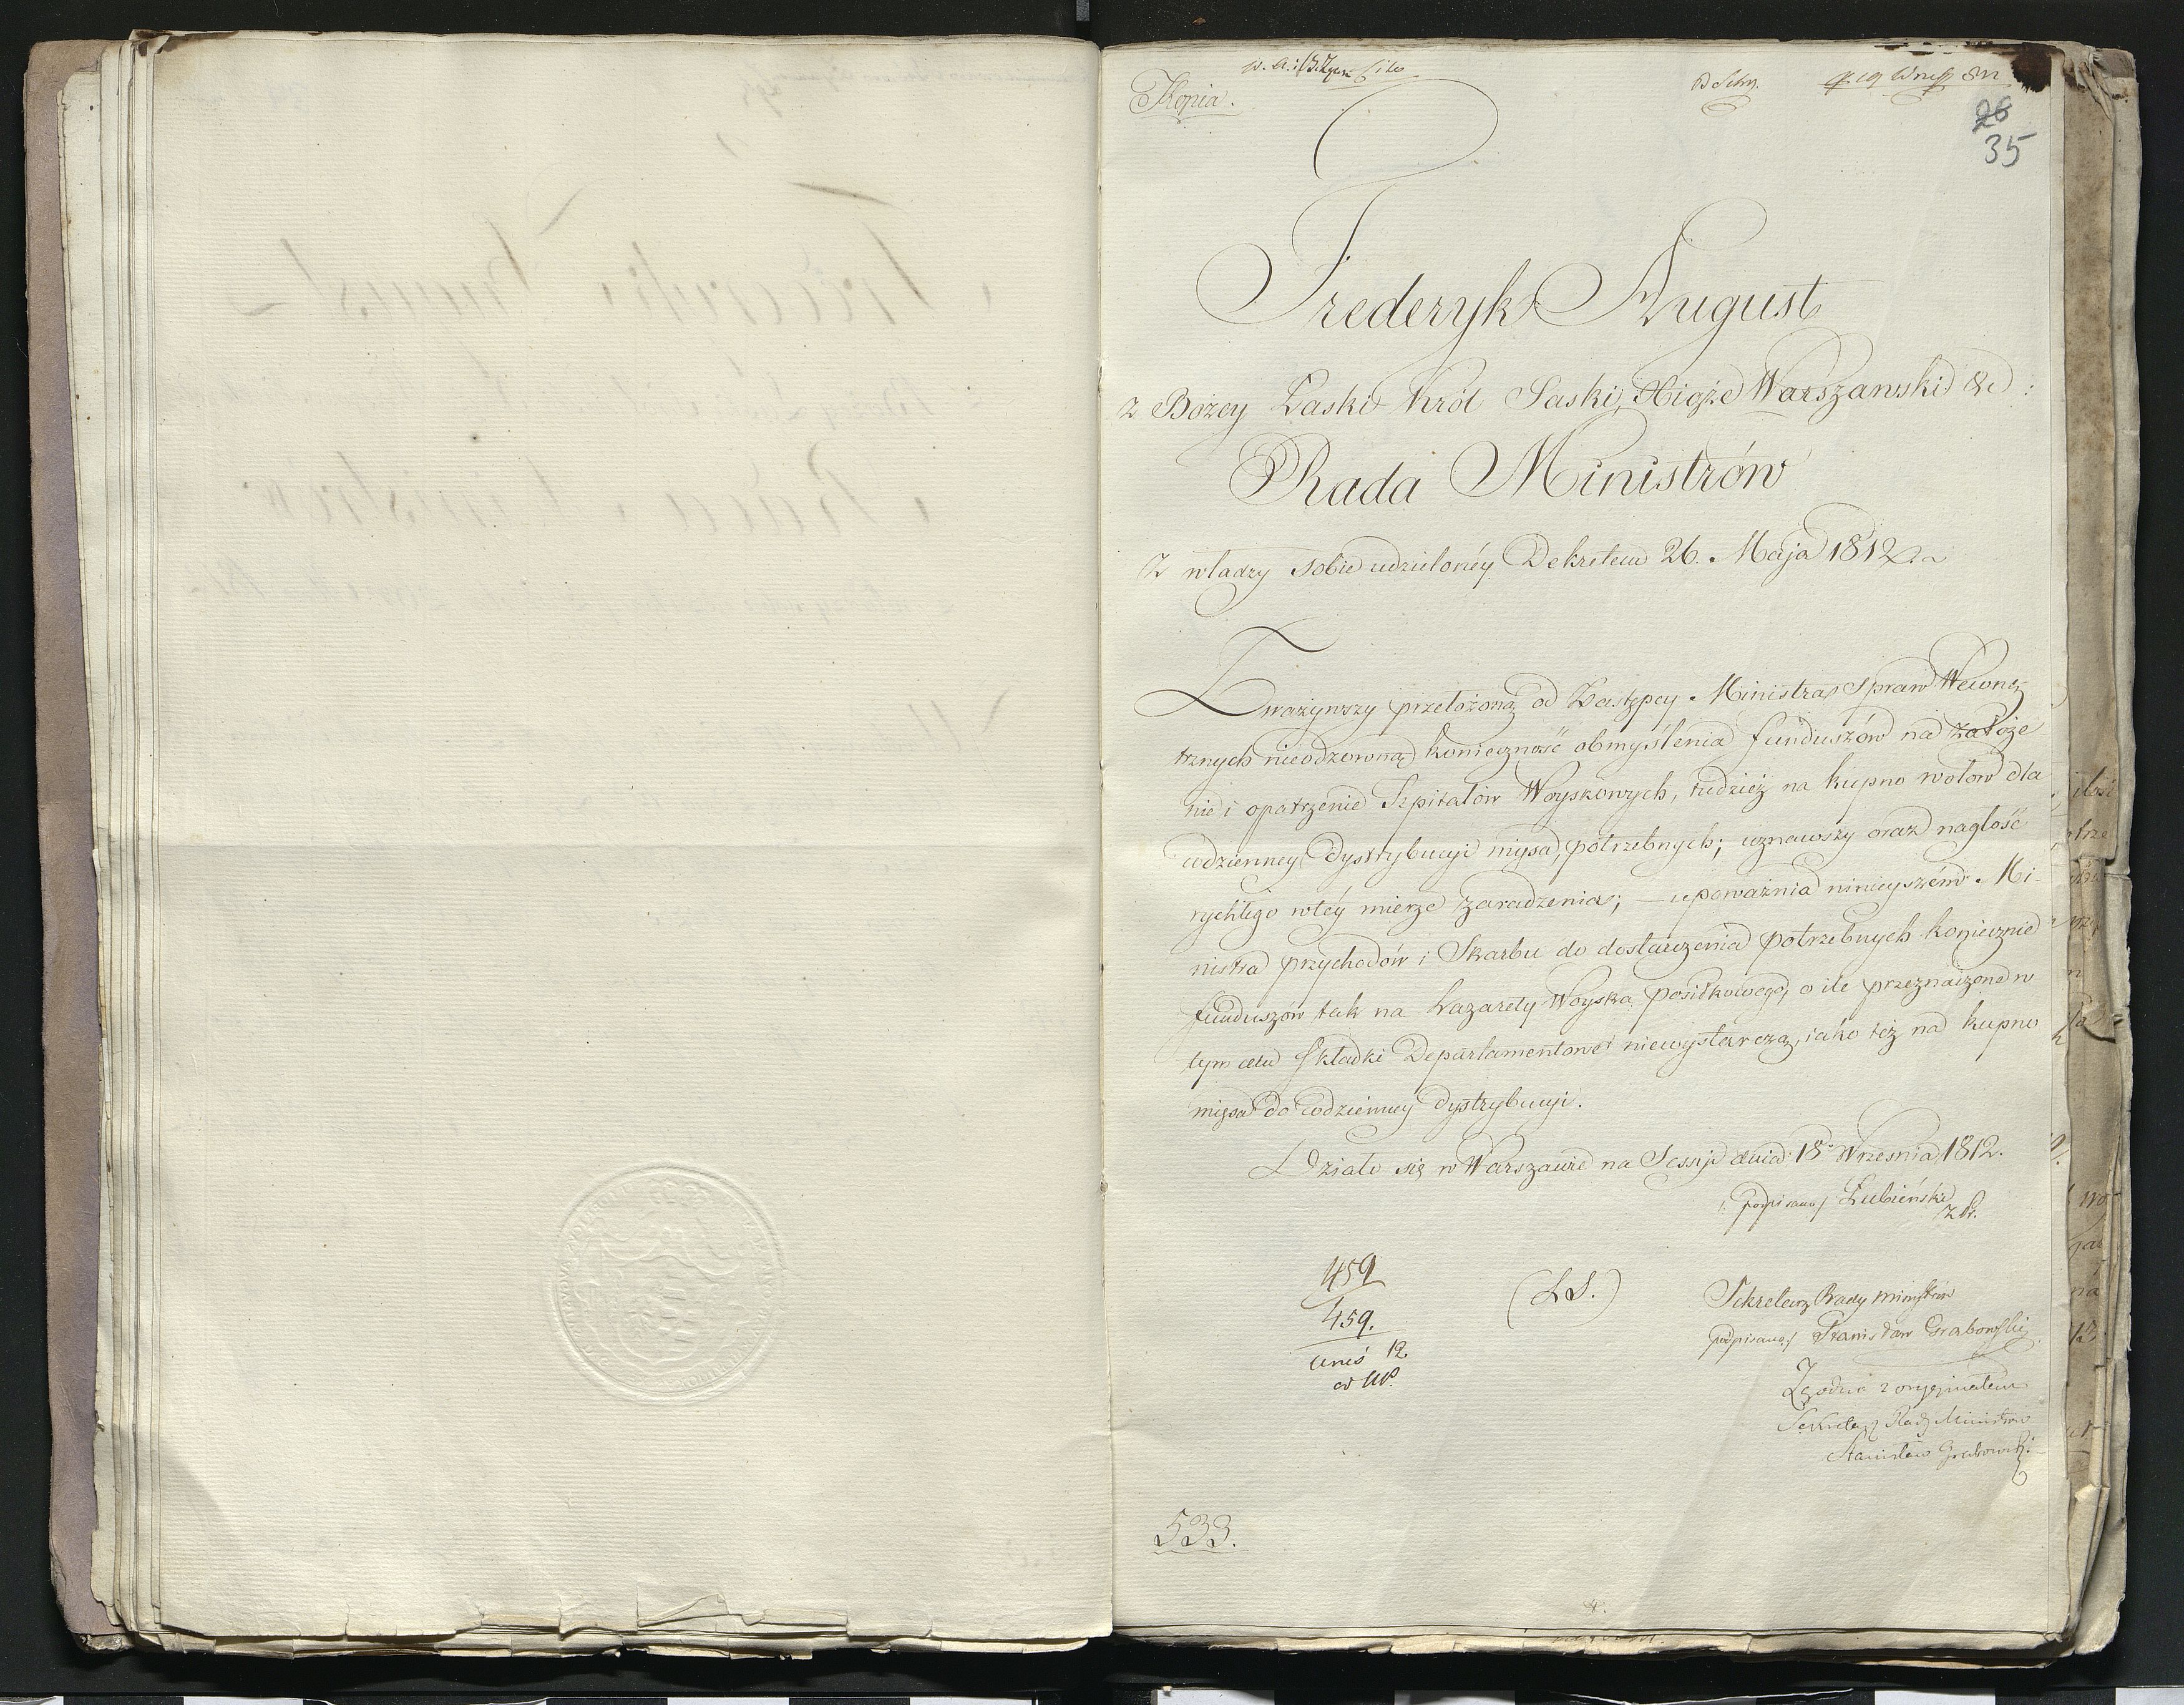 Kopia.
26
35
Frederyk August
z Bożey Łaski Król Saski, Xiąże Warszawski &c:
Rada Ministrów
Z władzy sobie udzielonéy Dekretem 26. Maja 1812 r.
Zważywszy przełożoną od Zastępcy Ministra Spraw Wewnę
trznych nieodzowną konieczność obmyślenia funduszów na założe
nie i opatrzenie Szpitalów Woyskowych, tudzież na kupno wołów dla
codzienney Dystrybucyi mięsa, potrzebnych; uznawszy oraz nagłość
rychłego w téy mierze zaradzenia; — upoważnia ninieyszém Mi-
nistra przychodów i Skarbu do dostarczenia potrzebnych koniecznie
funduszów tak na Lazarety Woyska posiłkowego, o ile przeznaczone w
tym celu Składki Departamentowe niewystarczą, iako też na kupno
mięsa do codzienney Dystrybucyi.
Działo się w Warszawie na Sessyi dnia 18 Września 1812.
/podpisano/ Łubieński
459
459.
(L.S.)
Sekretarz Rady Ministrów
podpisano/ Stanisław Grabowski
Zgodno z oryginałem
Sekretarz Rady Ministrów
Stanisław Grabowski
533.